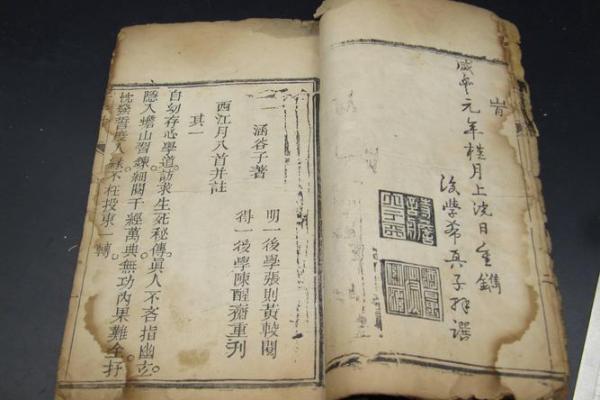 咸豐元年桂月上浣日重鐫
後學希真子拜譔
一
涵谷子著
明一後學張則黃較閱
得一後學陳醒齋重刊
西江月八首并註
其一
自幼存心學道訪求生死秘傳真人不吝指幽玄
隱入嶗山習鍊細閱千經萬典無功內果難全抒
忱發誓度人緣不枉投東一轉